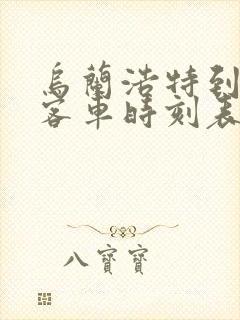 烏蘭浩特到
客車時刻表
八寶寶